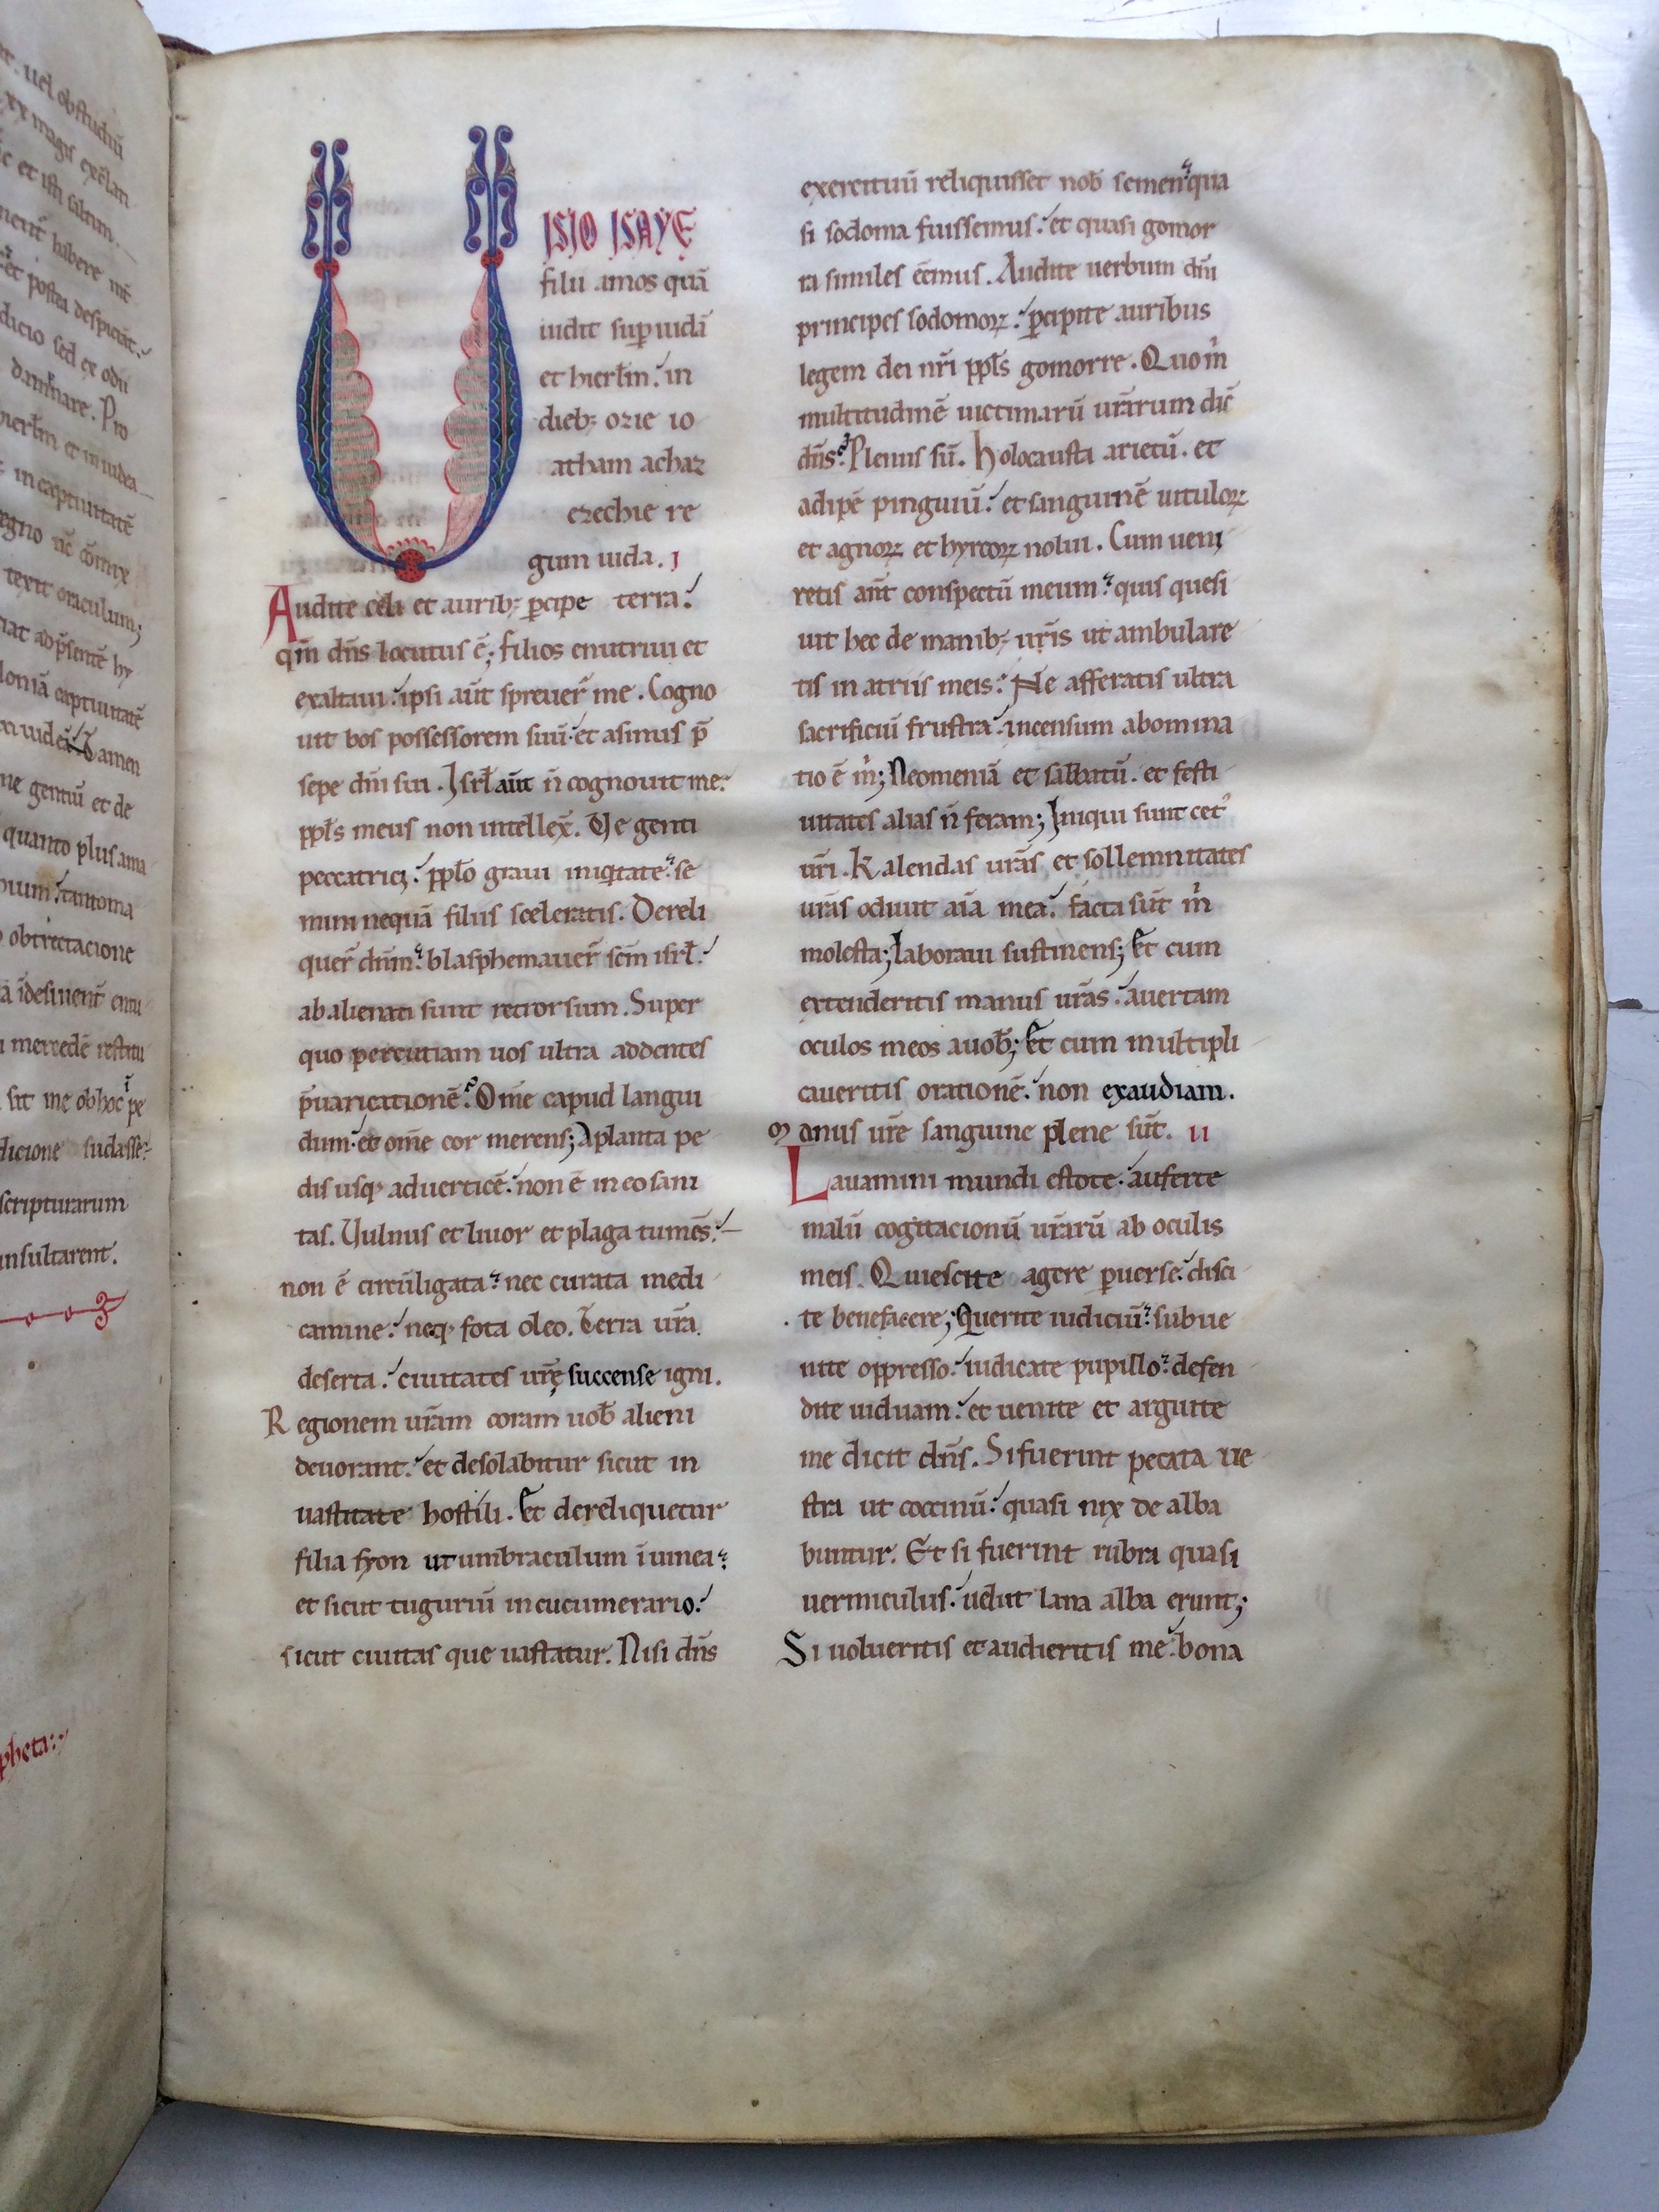 er. uel obstudiū
xx magis exēlan
ic et isti siltim.
posita despiciāt.
dicio sed ex odii
dāmnare. Pro
hierłm et in iudea
incaptiuitatē
regno
texit oraculum;
iat adp̄sentē hy
captiuitatē
Tamen
ne gentiū et de
quanto plus ama
tantoma
obtrectacione
merredē restitu
sit me ob hoc
dicione sudasse
scripturarum
insultarent.
pheta:
VISIO ISAYE
filii amos quā
uidit suꝑ iudā
et hierłm. in
dieb; ozie io
atham achaz
ezechie re
gum iuda. I
Audite celi et aurib; ꝑcipe terra.
qm̄ dn̄s locutus ē; filios enutriui et
exaltaui. ipsi aūt spreuer̄ me. Cogno
uit bos possessorem suū. et asinus p̄
sepe dn̄i sui. Isrł aūt n̄ cognouit me.
ppłs meus non intellex̄. Ve genti
peccatrici. ppło graui iniq̇tate. se
mini nequā filiis sceleratis. Dereli
quer̄ dn̄m. blasphemauer̄ scm̄ isrł.
abalienati sunt retrorsum. Super
quo percutiam uos ultra addentes
p̄uaricationē. Om̄e capud langui
dum. et om̄e cor merens; A planta pe
dis usq; aduerticē. non ē in eo sani
tas. Uulnus et liuor et plaga tumēs.
non ē circūligata. nec curata medi
camine. neq; fota oleo. Terra ur̄a
deserta. ciuitates ur̄ę succense igni.
Regionem ur̄am coram uob̄ alieni
deuorant. et desolabitur sicut in
uastitate hostili. Et derelinquetur
filia syon ut umbraculum ī uinea.
et sicut tuguriū in cucumerario.
sicut ciuitas que uastatur. Nisi dn̄s
exercituū reliquisset nob̄ semen. qua
si sodoma fuissemus. et quasi gomor
ra similes eēmus. Audite uerbum dn̄i
principes sodomoꝝ. ꝑcipite auribus
legem dei nr̄i ppłs gomorre. Quo ṁ
multitudinē uictimarū ur̄arum dic̄
dn̄s. Plenus sū. holocausta arietū. et
adipē pinguiū. et sanguinē uituloꝝ
et agnoꝝ et hyrcoꝝ nolui. Cum ueni
retis ān̄t conspectū meum. quis quesi
uit hec de manib; ur̄is ut ambulare
tis in atriis meis. Ne afferatis ultra
sacrificiū frustra. incensum abomina
tio ē ṁ; Neomeniā et sabbatū. et festi
uitates alias n̄ feram; Iniqui sunt cet'
ur̄i. Kalendas ur̄as et sollemnitates
ur̄as odiuit aīa mea. facta sūt ṁ
molesta; laboraui sustinens; Et cum
extenderitis manus ur̄as. auertam
oculos meos auob̄; Et cum multipli
caueritis orationē. non exaudiam.
Manus ur̄e sanguine plene sūt. II
Lauamini mundi estote. auferte
malū cogitacionū ur̄arū ab oculis
meis. Quiescite agere ꝑuerse. disci
te benefacere; Querite iudiciū. subue
nite oppresso. iudicate pupillo. defen
dite uiduam. et uenite et arguite
me dicit dn̄s. Si fuerint pecata ue
stra ut coccinū. quasi nix de alba
buntur. Et si fuerint rubra quasi
uermiculus. uelut lana alba erunt;
Si uolueritis et audieritis me. bona